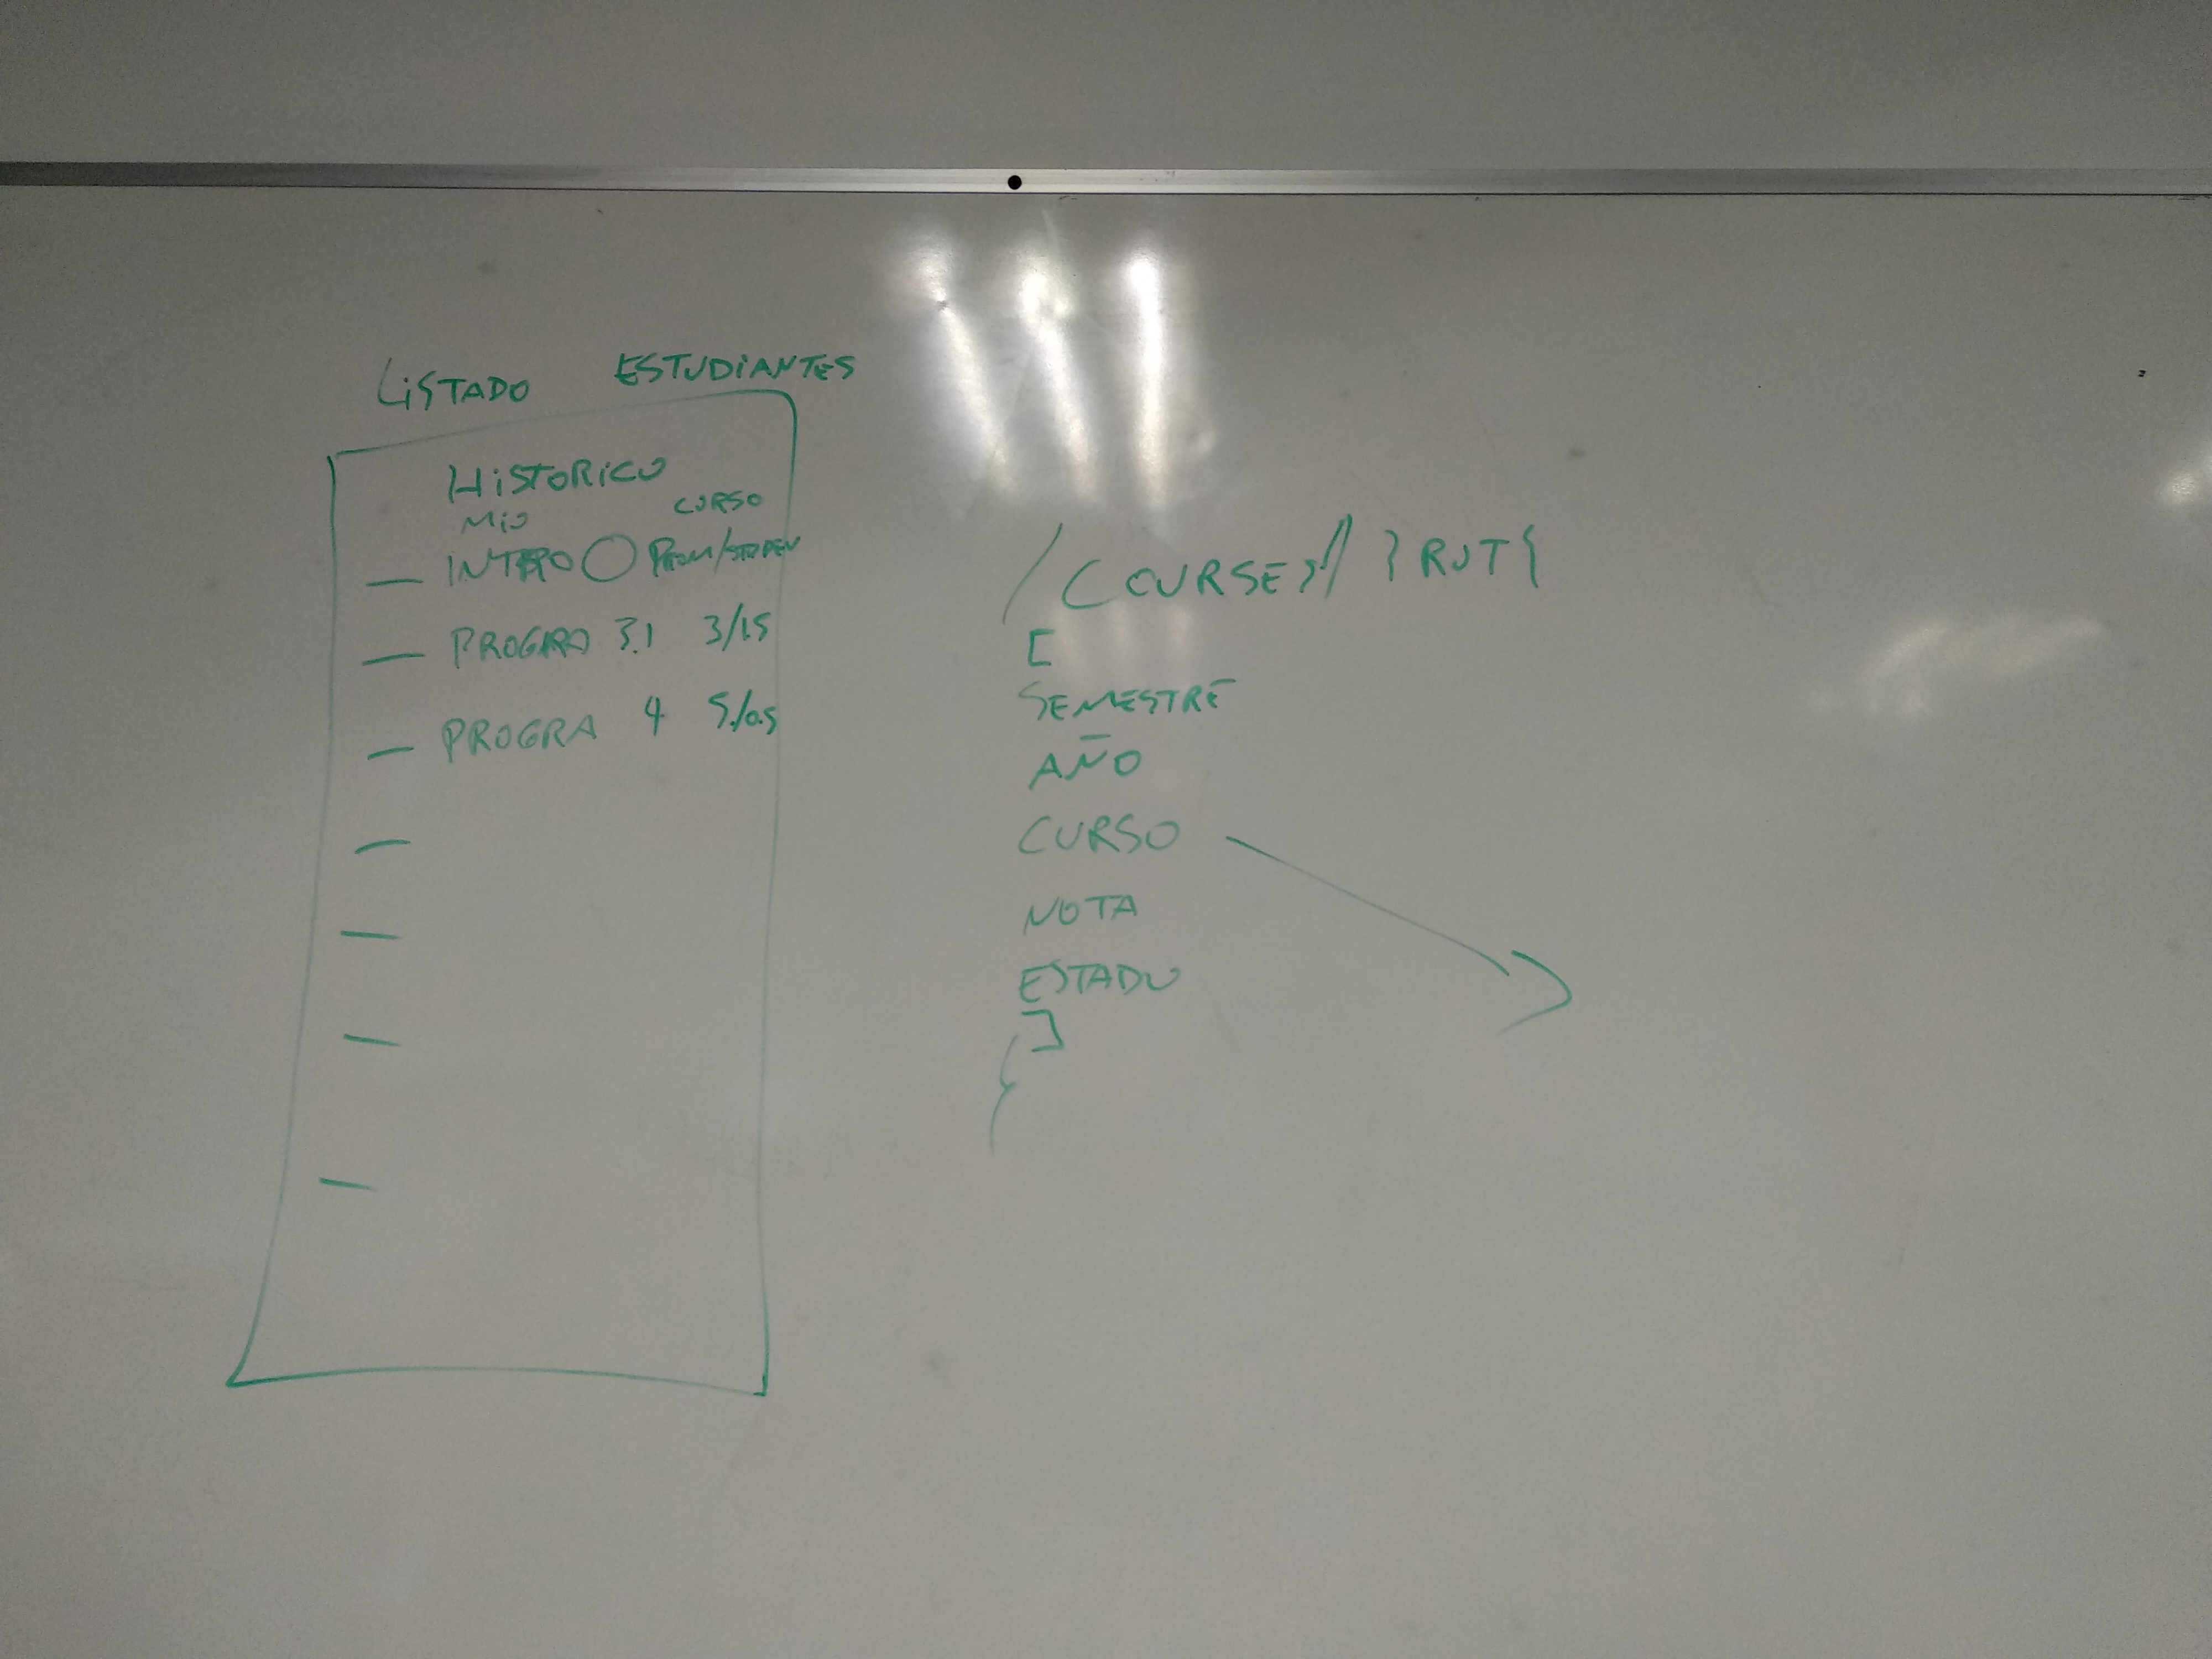 LISTADO ESTUDIANTES
HISTORICO
MIO CURSO
— INTRO PROM/STDDEV
— PROGRA 3.1 3/1.5
— PROGRA 4 5./0.5
—
—
—
—
/COURSES/ }RUT{
[
SEMESTRE
AÑO
CURSO
NOTA
ESTADO
]